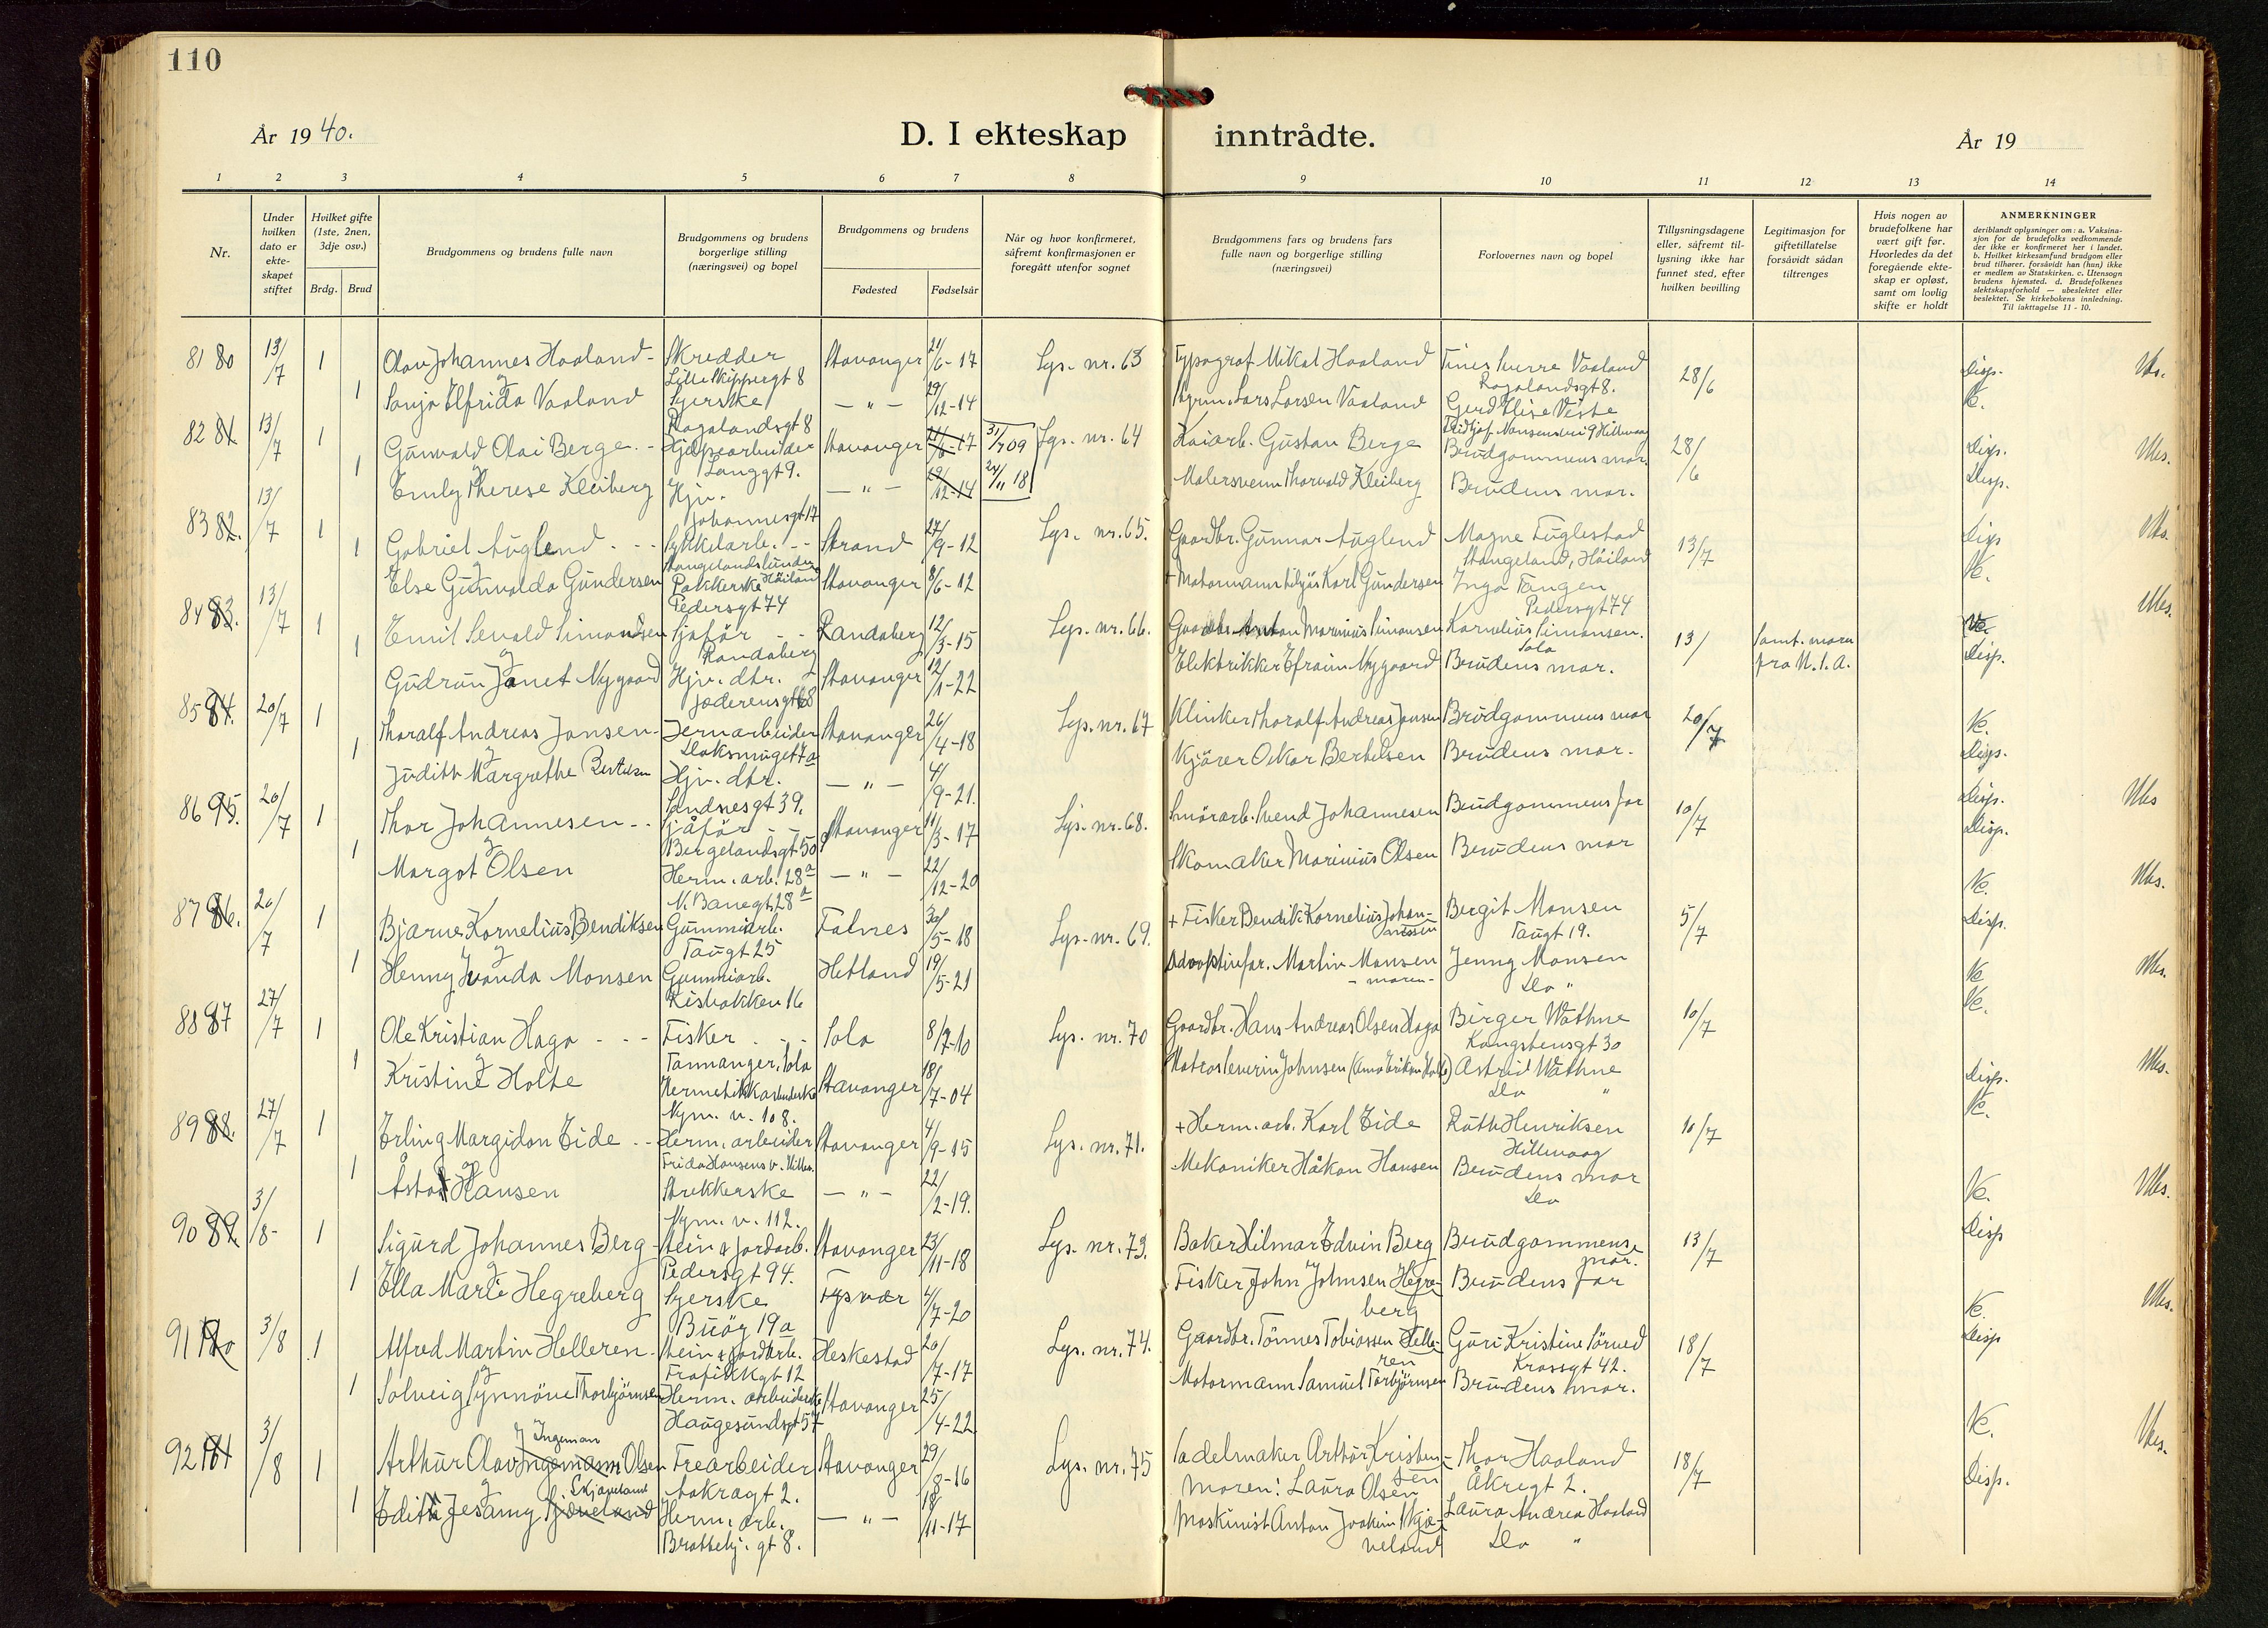 110
År 1940.
D. I ekteskap inntrådte.
År 19
1 2 3 4 5 6 7 8 9 10 11 12 13 14
Nr.
Under hvilken dato er ekte-skapet stiftet
Hvilket gifte (1ste, 2nen, 3dje osv.)
Brdg. Brud
Brudgommens og brudens fulle navn
Brudgommens og brudens borgerlige stilling (næringsvei) og bopel
Brudgommens og brudens
Fødested Fødselsår
Når og hvor konfirmeret, såfremt konfirmasjonen er foregått utenfor sognet
Brudgommens fars og brudens fars fulle navn og borgerlige stilling (næringsvei)
Forlovernes navn og bopel
Tillysningsdagene eller, såfremt til-lysning ikke har funnet sted, efter hvilken bevilling
Legitimasjon for giftetillatelse forsåvidt sådan tiltrenges
Hvis nogen av brudefolkene har vært gift før. Hvorledes da det foregående ekte-skap er opløst, samt om lovlig skifte er holdt
ANMERKNINGER
deriblandt oplysninger om: a. Vaksina-sjon for de brudefolks vedkommende der ikke er konfirmeret her i landet. b. Hvilket kirkesamfund brudgom eller brud tilhører, forsåvidt han (hun) ikke er medlem av Statskirken. c. Utensogn brudens hjemsted. d. Brudefolkenes slektskapsforhold — ubeslektet eller beslektet. Se kirkebokens innledning. Til iakttagelse 11 - 10.
81 80 13/7 1 Olav Johannes Haaland - Skredder Stavanger 21/6-17 Lys. nr. 63 Typograf Mikal Haaland 28/6 Disp.
Lille Skippergt 8 Rogalandsgt 8.
1 Sonja Elfrida Vaaland Syerske — " — 29/12-14 Lars Larsen Vaaland Gerd Elise Viste
Rogalandsgt 8
82 81 13/7 1 Gunvald Olai Berge - Hjelpearbeider Stavanger 21/6-17 31/7 09 Lys. nr. 64 Kaiarb. Gustav Berge Brudgommens mor. 28/6 Disp.
Langgt 9.
1 Emly Therese Kleiberg Hjv. — " — 29/12-14 24/11 18 Malersvenn Thorvald Kleiberg Brudens mor. Disp.
Johannesgt 17
83 82. 13/7 1 Gabriel Auglend Sykkelarb. Strand 27/9-12 Lys. nr. 65. Gaardbr. Gunnar Auglend Magne Fuglestad 13/7 Disp
Høiland Stangeland, Höiland
1 Else Gunvalda Gundersen Pakkerske Stavanger 8/6-12 Karl Gundersen Inga Tangen
Pedersgt 74 Pedersgt 74
84 83. 13/7 1 Emil Sevald Simonsen Sjåför Randaberg 12/3-15 Lys. nr. 66. Gaardbr. Anton Marinius Simonsen Kornelius Simonsen. 13/ Samt. moren
Randaberg Sola fra U.S.A.
1 Gudrun Janet Nygaard Hjv. dtr. Stavanger 12/1-22 Elektrikker Efraim Nygaard Brudens mor. Disp.
Jæderensgt 68
85 84. 20/7 1 Thoralf Andreas Jansen - Jernarbeider Stavanger 26/4-18 Lys. nr. 67 Klinker Thoralf Andreas Jansen Brudgommens mor 20/7
1 Judith Margrethe Bertelsen Hjv. dtr. — " — 4/9-21. Kjörer Oskar Bertelsen Brudens mor. Disp.
Sandnesgt 39.
86 95. 20/7 1 Thor Johannesen Sjåför Stavanger 11/3-17 Lys. nr. 68. Svend Johannesen Brudgommens far 10/7 Disp.
Bergelandsgt 50
1 Margot Olsen Herm. arb. 28a — " — 22/12-20 Skomaker Marinius Olsen Brudens mor Disp.
N. Banegt 28a
87 86. 20/7 1 Bjarne Kornelius Bendiksen Gummiarb. Falnes 30/5-18 Lys. nr. 69. + Fisker Bendik Kornelius Johan-nessen Bergit Monsen 5/7
Taugt 25 Taugt 19.
1 Henny Wanda Monsen Gummiarb. Hetland 19/5-21 Adoptivfar. Martin Monsen Jenny Monsen Disp.
Risbakken 16 Do "
88 87 27/7 1 Ole Kristian Haga Fisker Sola 8/7-10 Lys. nr. 70 Gaardbr. Hans Andreas Olsen Haga Birger Wathne 10/7
Tananger, Sola Kongstensgt 30
1 Kristine Holte Hermetikkarbeiderske Stavanger 18/7-04 Matros Severin Johnsen Astrid Wathne
Nym. v. 108. Do "
89 88. 27/7 1 Erling Margidon Eide Herm. arbeider Stavanger 4/9-15 Lys. nr. 71. + Herm. arb. Karl Eide Ruth Henriksen 10/7 Disp.
Frida Hansens v. Hillev. Hillevaag
1 Åsta Hansen Strekkerske — " — 22/2-19. Mekaniker Håkon Hansen Brudens mor
Nym. v. 112. Do
90 89 3/8- 1 Sigurd Johannes Berg - Stein & jordarb. Stavanger 23/11-18 Lys. nr. 73. Baker Hilmar Edvin Berg Brudgommens mor. 13/7
Pedersgt 94.
1 Ella Marie Hegreberg Syerske Tysvær 4/7-20 Fisker John Johnsen Hegre-berg Brudens far Disp
Buöy 19a
91 90 3/8 1 Alfred Martin Helleren - Stein & jordarb. Heskestad 20/7-17 Lys. nr. 74. Gaardbr. Tönnes Tobiassen Helle-ren Guri Kristine 18/7
Trafikkgt 12 Krossgt 42.
1 Solveig Synnöve Thorbjörnsen Herm. arbeiderske Stavanger 25/4-22 Motormann Samuel Torbjörnsen Brudens mor. Disp
Haugesundsgt 57
92 91 3/8 1 Arthur Olav Ingemann Ingeman Olsen Trearbeider Stavanger 29/8-16 Lys. nr. 75 Sadelmaker Arthur Kristen-sen Thor Haaland 18/7
Aakragt 2. moren: Laura Olsen Åkregt 2.
1 Edith Jesamy Skjæveland Herm. arb. — " — 18/11-17 Maskinist Anton Joakim Skjæ-veland Laura Andrea Haaland Disp.
Brattebj. gt 8. Do "